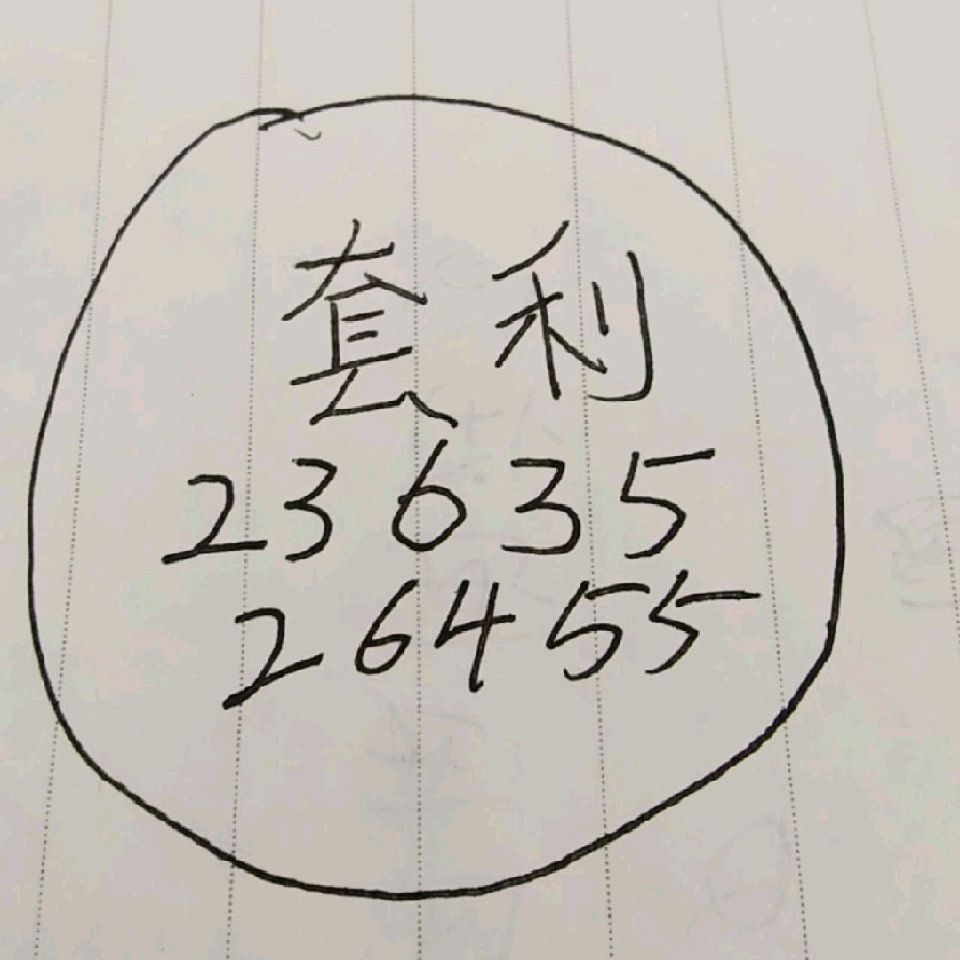 套利
23635
26455